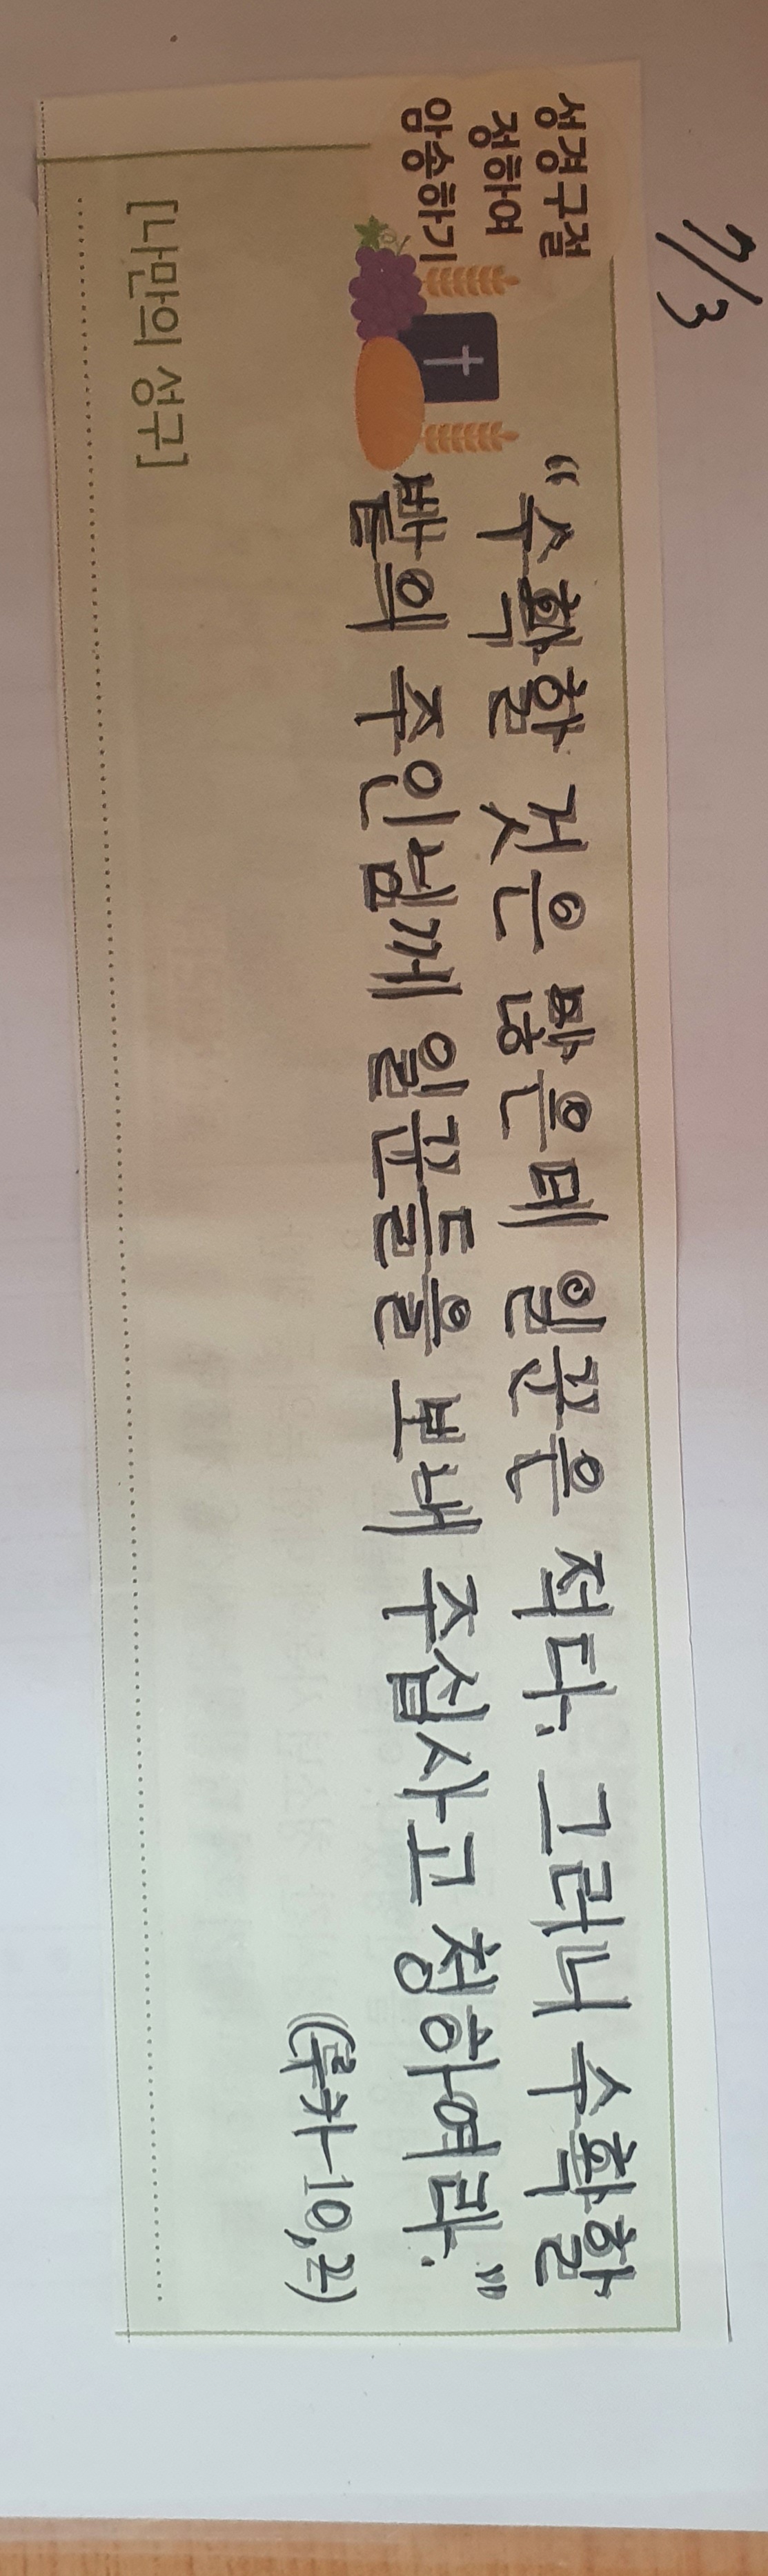 7/3
성경구절
정하여
암송하기
“수확할 것은 많은데 일꾼은 적다. 그러니 수확할
밭의 주인님께 일꾼들을 보내 주십사고 청하여라.”
(루카 10,2)
[나만의 성구]